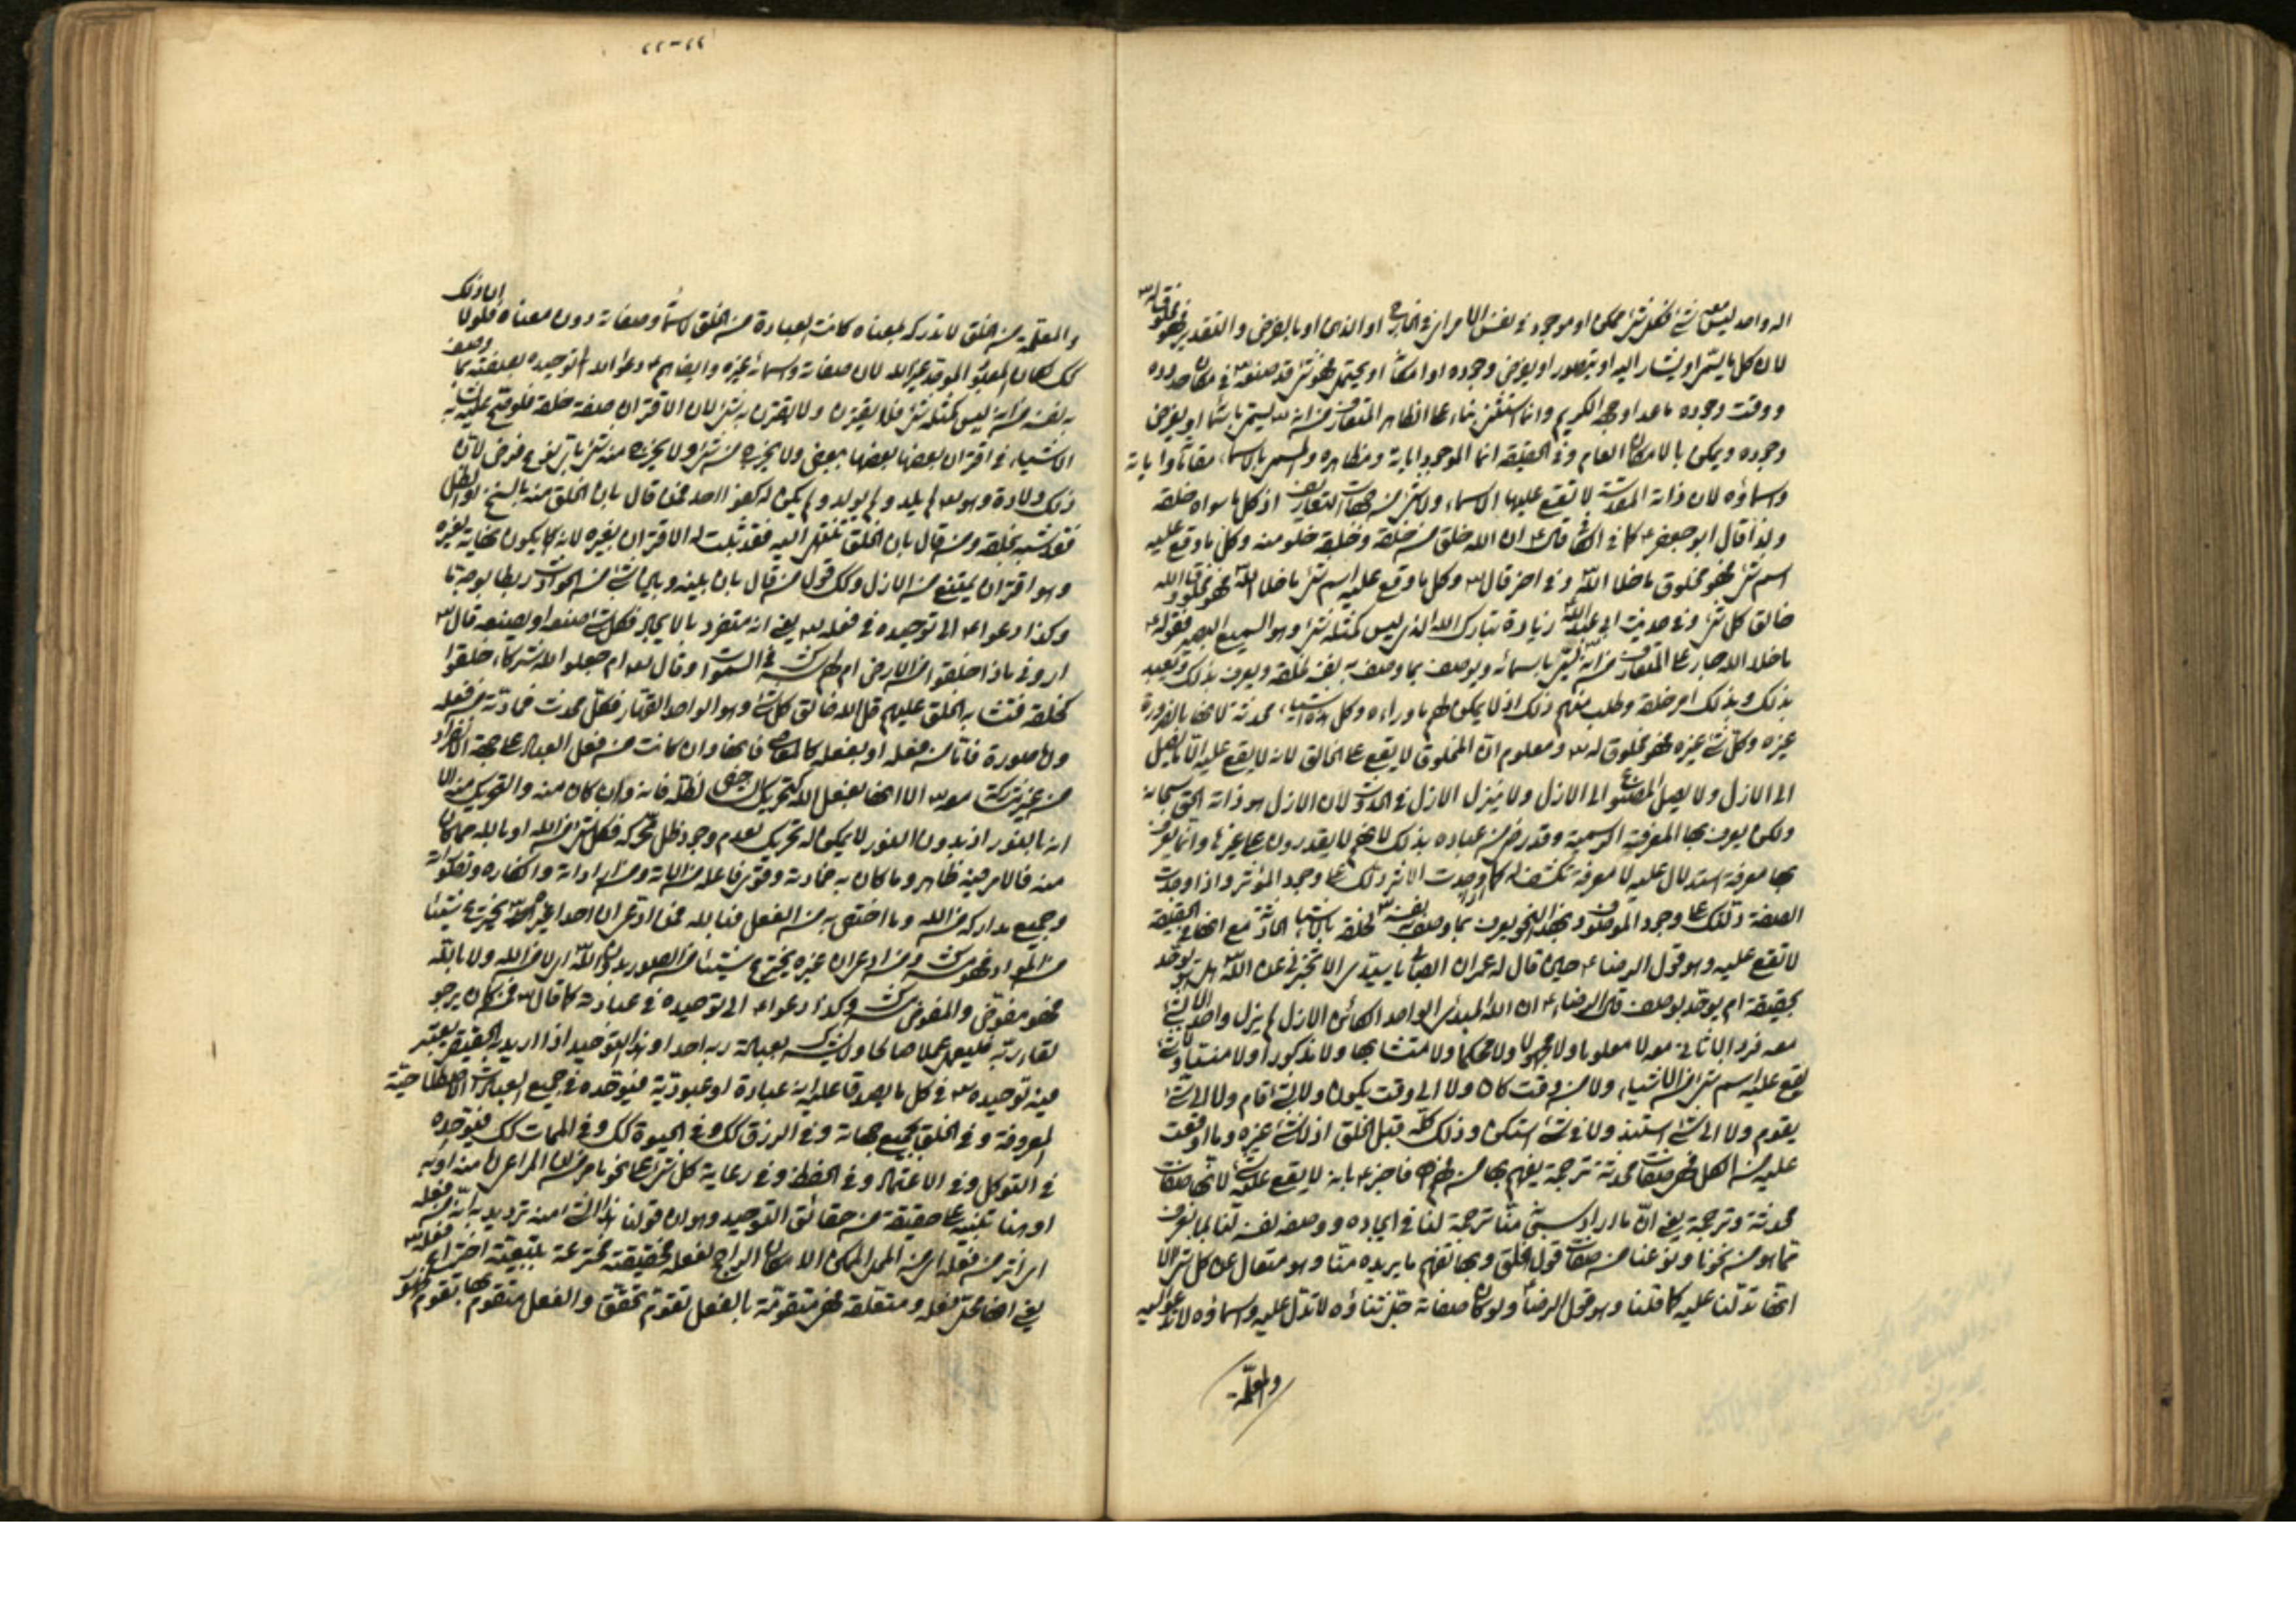 اله واحد ليس معه شئ فكل شئ ممكن او موجود في نفس الامر اي في الخارج او الذهن او بالفرض والتقدير فهو مخلوق له تع
لان كل ما يسمى او يشار اليه او يتصور او يفرض وجوده او امكانا او يحتمل فهو شئ قد صنعه في مكان حدوده
ووقت وجوده ما عدا وجهه الكريم وانما استثنى بناء على الظاهر المتعارف من انه يسمى باسماء او يفرض
وجوده ويمكن بالامكان العام وفي الحقيقة انما الموجود اياته ومظاهره والمسمى بالاسماء مقاماته واياته
واسماؤه لان ذاته المقدسة لا تقع عليها الاسماء ولا شئ من جهات التعاريف اذ كل ما سواه خلقه
ولذا قال ابو جعفر ع كما في الكافي قال ع ان الله خلو من خلقه وخلقه خلو منه وكل ما وقع عليه
اسم شئ فهو مخلوق ما خلا الله وفي اخر قال ع وكل ما وقع عليه اسم شئ ما خلا الله فهو مخلوق والله
خالق كل شئ وفي حديث ابي عبد الله زيادة تبارك الله الذي ليس كمثله شئ وهو السميع البصير فقوله ع
ما خلا الله جار على المتعارف من انه يسمى باسمائه ويوصف بما وصف به نفسه لخلقه ويعرف بذلك ويعبد
بذلك وبذلك امر خلقه وطلب منهم ذلك اذ لا يمكن لهم ما وراءه وكل هذه الاشياء محدثة لانها بالضرورة
غيره وكل شئ غيره فهو مخلوق له تع ومعلوم ان المخلوق لا يقع على الخالق لانه لا يقع عليه الا ما يصل
الى الازل ولا يصل المصنوع الى الازل ولا ينزل الازل في الحدوث لان الازل هو ذاته الحق سبحانه
ولكن يعرف بها المعرفة الرسمية وقد رضي من عباده بذلك لانهم لا يقدرون على غيرها وانما يعرف
بها معرفة استدلال عليه لا معرفة تكشف له كما اذا وجدت الاثر دلك على وجود المؤثر واذا وجدت
الصفة دلتك على وجود الموصوف وبهذا النحو يعرف بما وصف به نفسه لخلقه بالاشياء الحادثة مع انها في الحقيقة
لا تقع عليه وهو قول الرضا ع حين قال له عمران الصابي يا سيدي الا تخبرني عن الله هل يوحد
بحقيقة ام يوحد بوصف قال الرضا ع ان الله المبدئ الواحد الكائن الاول لم يزل واحدا لا شئ
معه فردا لا ثاني معه لا معلوما ولا مجهولا ولا محكما ولا متشابها ولا مذكورا ولا منسيا ولا شيئا
يقع عليه اسم شئ من الاشياء ولا من وقت كان ولا الى وقت يكون ولا بشئ قام ولا الى شئ
يقوم ولا الى شئ استند ولا في شئ استكن وذلك كله قبل الخلق اذ لا شئ غيره وما اوقعت
عليه من الكل فهي صفات محدثة ترجمة يفهم بها من فهم فاخبر ع بانه لا يقع عليه شئ لانها صفات
محدثة وترجمة يعني ان ما اراد سبحانه منا ترجمة لنا في ايجاده ووصف نفسه لنا بما نعرف
مما هو من نحونا ونوعنا من صفات قول الخلق وبها نفهم ما يريده منا وهو متعال عن كل شئ الا
انها تدلنا عليه كما قلنا وهو قول الرضا ع ولو كان صفاته جل ثناؤه لا تدل عليه واسماؤه لا تدعو اليه
والمعلمة
٢٢-٢٢
والمعلمة من الخلق لا تدركه لمعناه كانت العبادة من الخلق لاسمائه وصفاته دون معناه فلولا ان ذلك
كك لكان المعبود الموحد غير الله لان صفاته واسمائه غيره وايضا هم ع دعوا الله الى توحيده بصفته بما وصف
به نفسه من انه ليس كمثله شئ فلا يقترن ولا يقترن به شئ لان الاقتران صفة خلقه فلو صح عليه شئ به
الاشياء في اقتران بعضها ببعض ولا يخرج من شئ ولا يخرج منه شئ باي نوع فرض لان
ذلك ولادة وهو تع لم يلد ولم يولد ولم يكن له كفوا احد فمن قال بان الخلق منه بالسنخ او الظل
فقد شبهه بخلقه ومن قال بان الخلق تنتهي اليه فقد ثبت له الاقتران بغيره لانه كما يكون نهاية لغيره
وهو اقتران يمتنع من الازل وكك قول من قال بان بينه وبين شئ من الحوادث ربطا بوجه ما
وكذا دعوا ع الى توحيده في فعله تع يعني انه متفرد بالايجاد فكل شئ صنعه او يصنعه قال تع
اروني ماذا خلقوا من الارض ام لهم شرك في السموات وقال تع ام جعلوا لله شركاء خلقوا
كخلقه فتشابه الخلق عليهم قل الله خالق كل شئ وهو الواحد القهار فكل محدث فمادته من فعله
واما صورته فاما من فعله او بفعله كالمعاصي فانها وان كانت من فعل العباد على جهة الانفراد
من غير شركة معه تع الا انها بفعل الله كتحريك الشخص لظله فانه وان كان منه والتحريك منه الا
انه بالنور اذ بدون النور لا يمكن له تحريك لعدم وجود ظل تحركه فكل شئ من الله او بالله مما كان
منه فالامر فيه ظاهر وما كان به فمادته وقوى فاعله من الاته ومن اراداته وافكاره وتصوراته
وجميع مداركه من الله وما اختص به من الفعل فبالله فمن ادعى ان احدا غير الله يخترع شيئا
من المواد فهو مشرك ومن ادعى ان غيره يخترع شيئا من الصور بدون الله اي لا من الله ولا بالله
فهو مفوض والمفوض مشرك وكذا دعوا ع الى توحيده في عبادته كما قال تع فمن كان يرجو
لقاء ربه فليعمل عملا صالحا ولا يشرك بعبادة ربه احدا وهذا التوحيد اذا اريد به الحقيقي يعتبر
فيه توحيده تع في كل ما يصدق عليه انه عبادة او عبودية فيوحده في جميع العبادات الاصطلاحية
المعروفة وفي الخلق بجميع جهاته وفي الرزق كك وفي الحيوة كك وفي الممات كك فيوحده
في التوكل وفي الاعتماد وفي الحفظ وفي رعاية كل شئ على نحو ما مر من ان المراعى له منه او به
وهنا تنبيه على حقيقة من حقائق التوحيد وهو ان قولنا هذا الشئ منه نريد به انه من فعله
اي اثر من فعله اي من المدد الممكن الامكان الراجح لفعله فحقيقته مخترعة بتبعية اختراع فعله
يعني انها محل فعله ومتعلقه فهي متقومة بالفعل تقوم تحقق والفعل متقوم بها تقوم ظهور